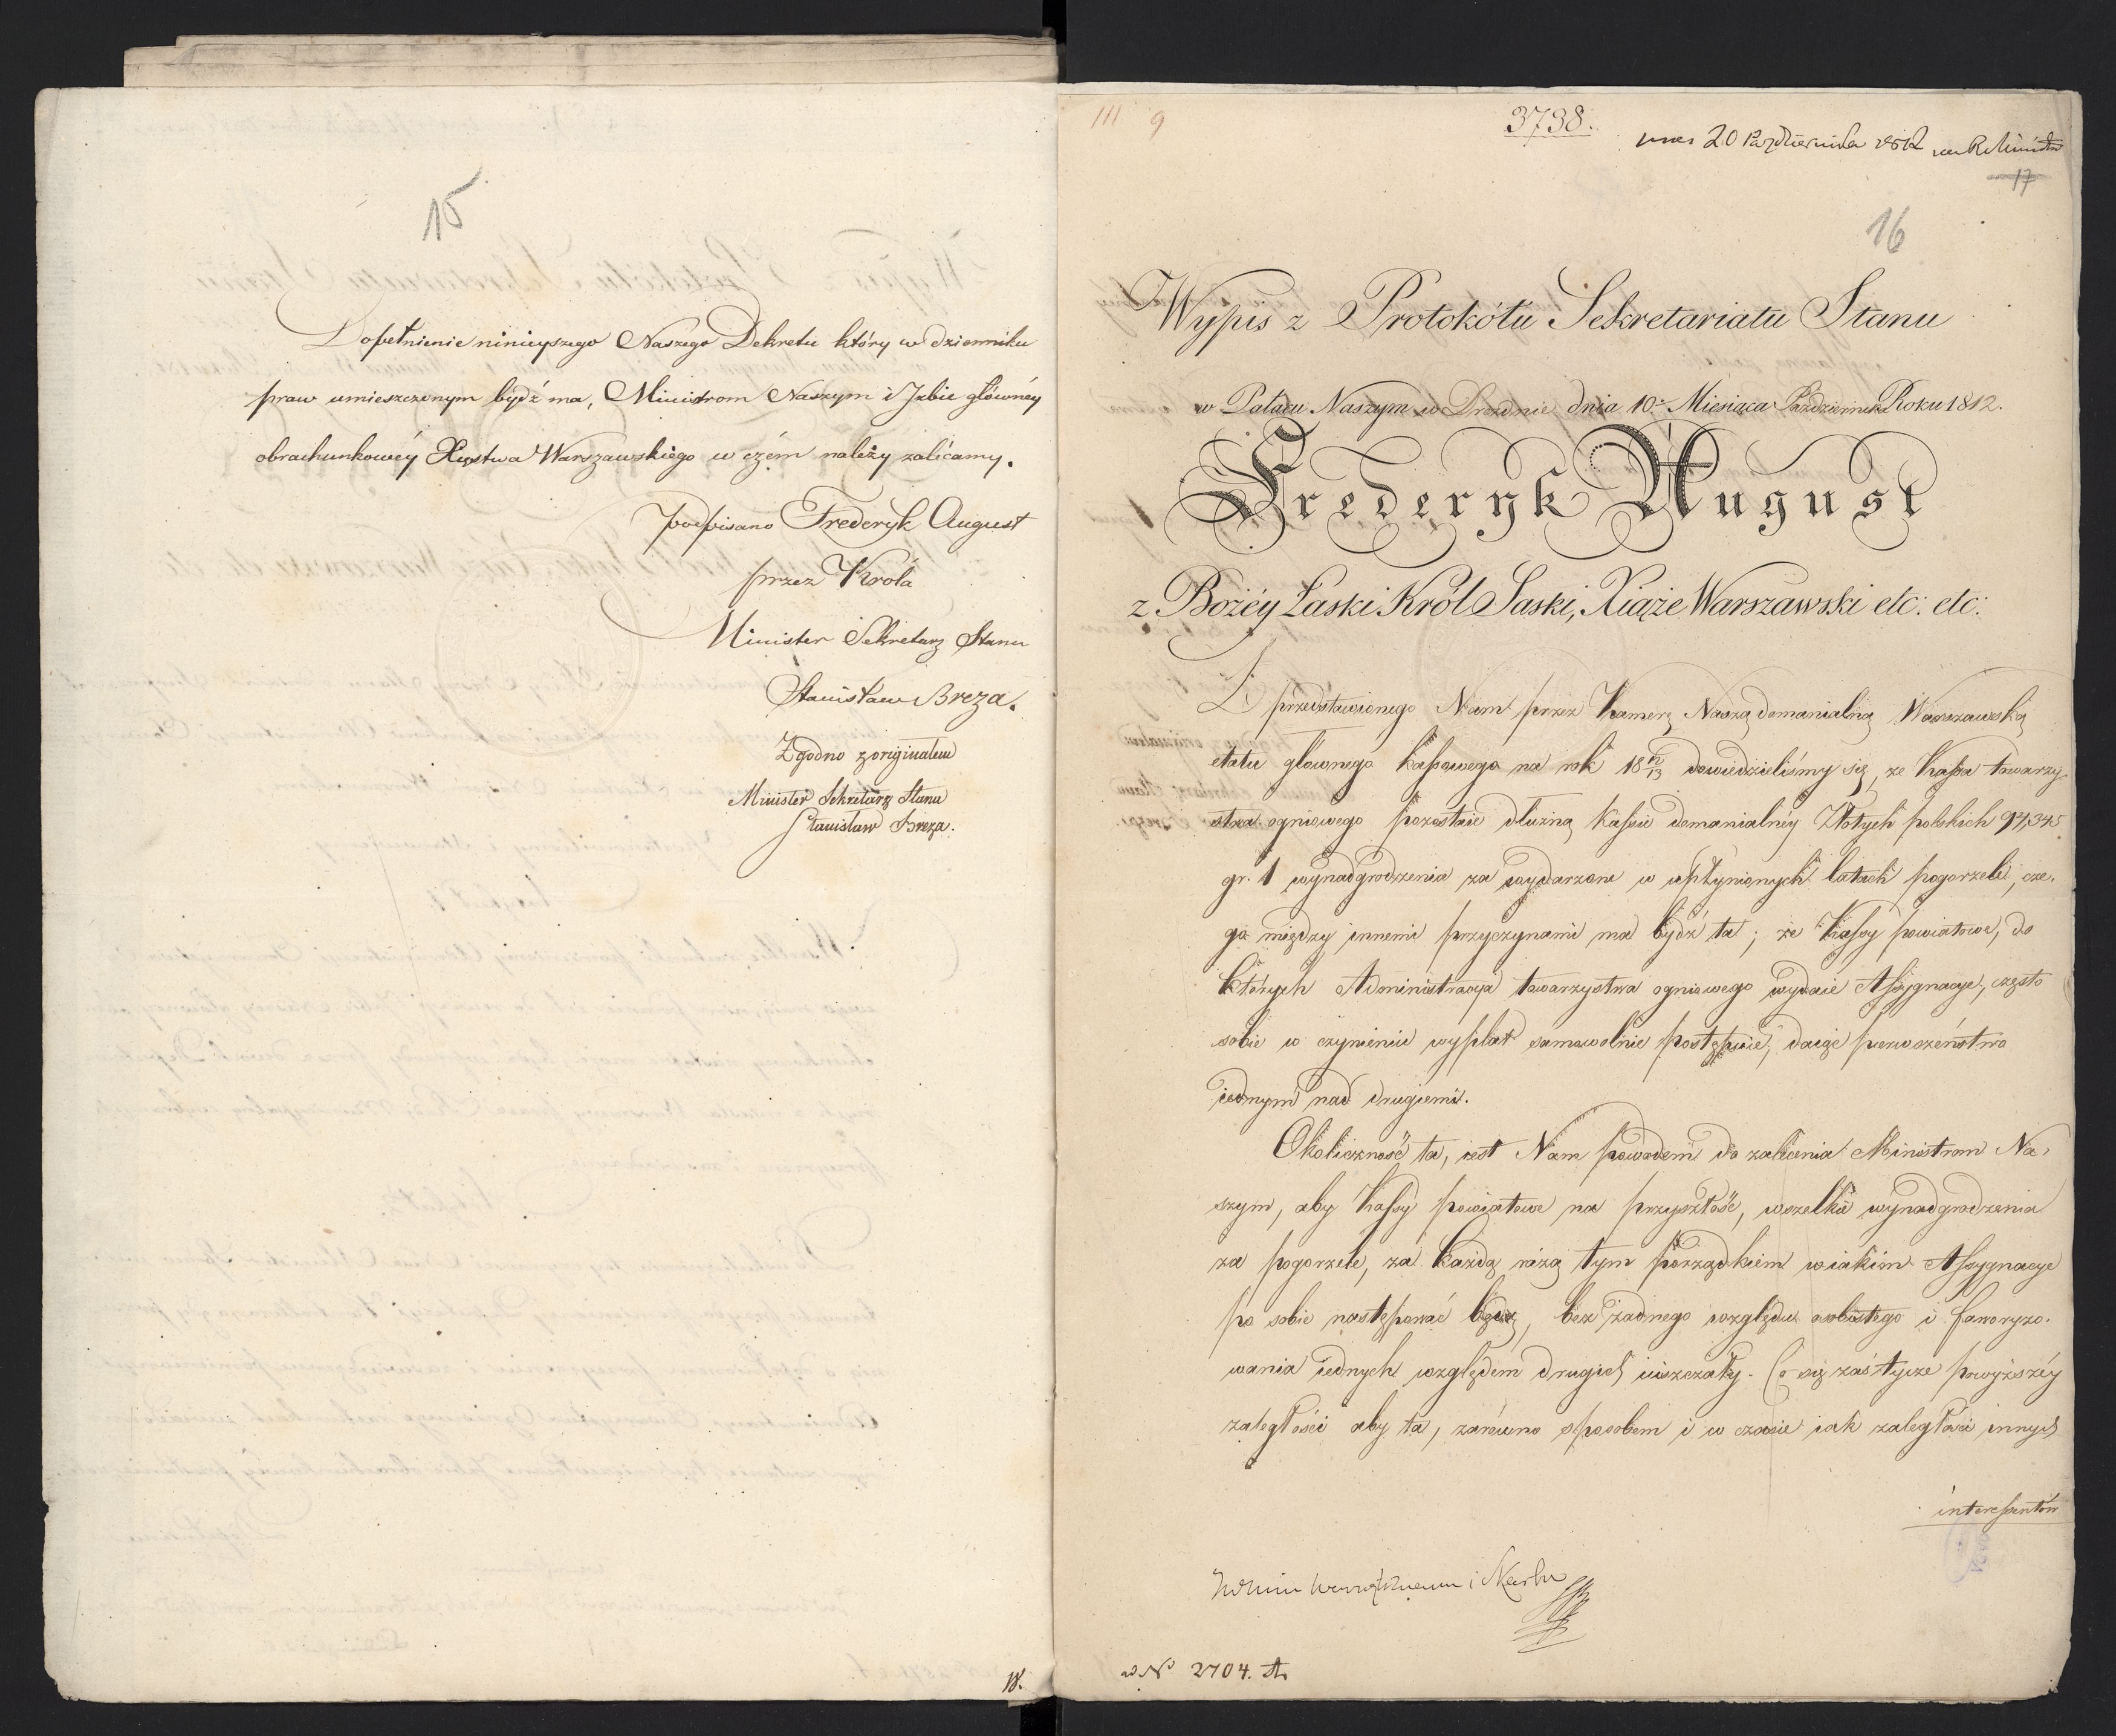 15
Dopełnienie ninieyszego Naszego Dekretu który w dzienniku
praw umieszczonym bydź ma, Ministrom Naszym i Izbie głównéy
obrachunkowéy Xięstwa Warszawskiego w czém należy zalécamy.
podpisano Frederyk August
przez Króla
Minister Sekretarz Stanu
Stanisław Breza.
Zgodno z originałem
Minister Sekretarz Stanu
Stanisław Breza.
18.
III 9
3738.
20 Października 1812
17
16
Wypis z Protokółu Sekretariatu Stanu
w Pałacu Naszym w Dreznie dnia 10. Miesiąca Października Roku 1812.
Frederyk August
z Bożéy Łaski Król Saski, Xiąże Warszawski etc: etc:
Z przedstawionego Nam przez Kamerę Naszą domanialną Warszawską
etatu głównego Kassowego na rok 18 12/13 dowiedzieliśmy się, że Kassa towarzy-
stwa ogniowego pozostaie dłużną Kassie domanialnéy Złotych polskich 97,345
gr. 1 wynadgrodzenia za wydarzone w upłynionych latach pogorzele, cze-
go między innemi przyczynami ma bydź ta; że Kassy powiatowe, do
których Administracya towarzystwa ogniowego wydaie Assygnacye, często
sobie w czynieniu wypłat samowolnie postępuie, daiąc pierwszeństwo
iednym nad drugiemi.
Okoliczność ta, iest Nam powodem do zalécenia Ministrom Na-
szym, aby Kassy powiatowe na przyszłość, wszelkie wynadgrodzenia
za pogorzele, za każdą rażą tym porządkiem w iakim Assygnacye
po sobie następować będą, bez żadnego względu osobistego i faworyzo-
wania iednych względem drugich uiszczały. Co się zaś tycze powyższéy
zaległości aby ta, zarówno sposobem i w czasie iak zaległości innych
interessentów
i Skarbu
ad No 2704. A.